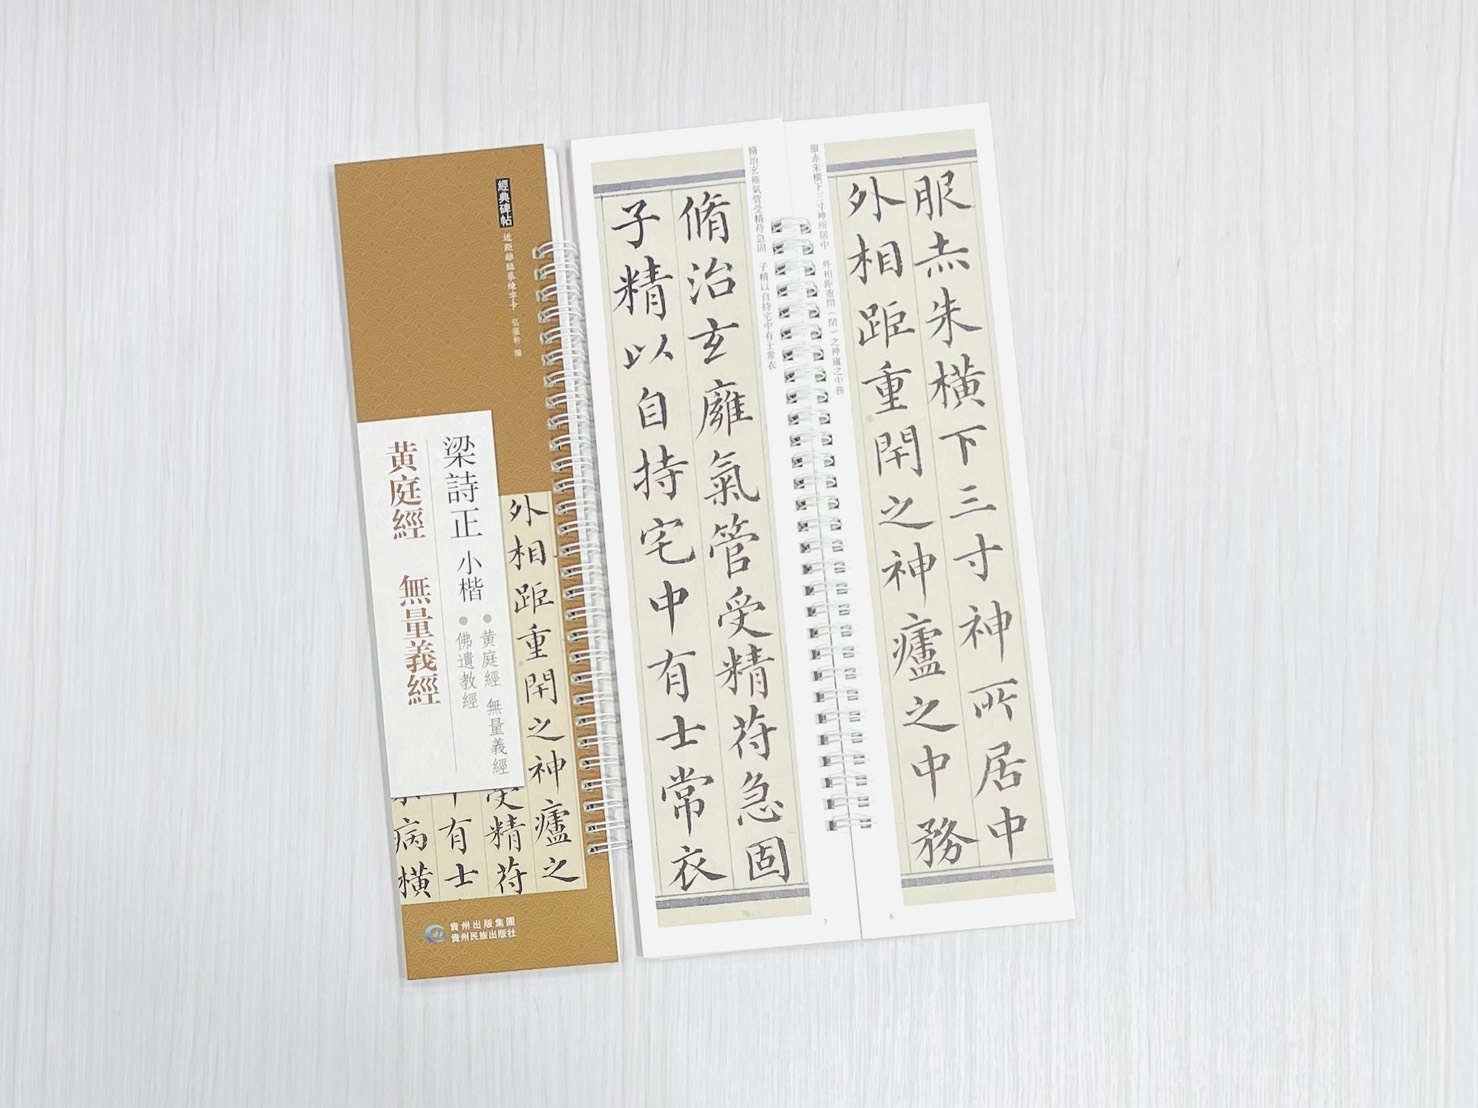 經典碑帖
近距離臨摹練字卡
梁詩正 小楷
黃庭經 無量義經
●黃庭經 無量義經
●佛遺教經
外相距重閉之神廬之
受精苻
中有士
病橫
貴州出版集團
貴州民族出版社
服赤朱橫下三寸神所居中
外相距重閇之神廬之中務
服赤朱橫下三寸神所居中 外相距重閇（閉）之神廬之中務
6
脩治玄廱氣管受精苻急固
子精以自持宅中有士常衣
脩治玄廱氣管受精苻急固 子精以自持宅中有士常衣
7